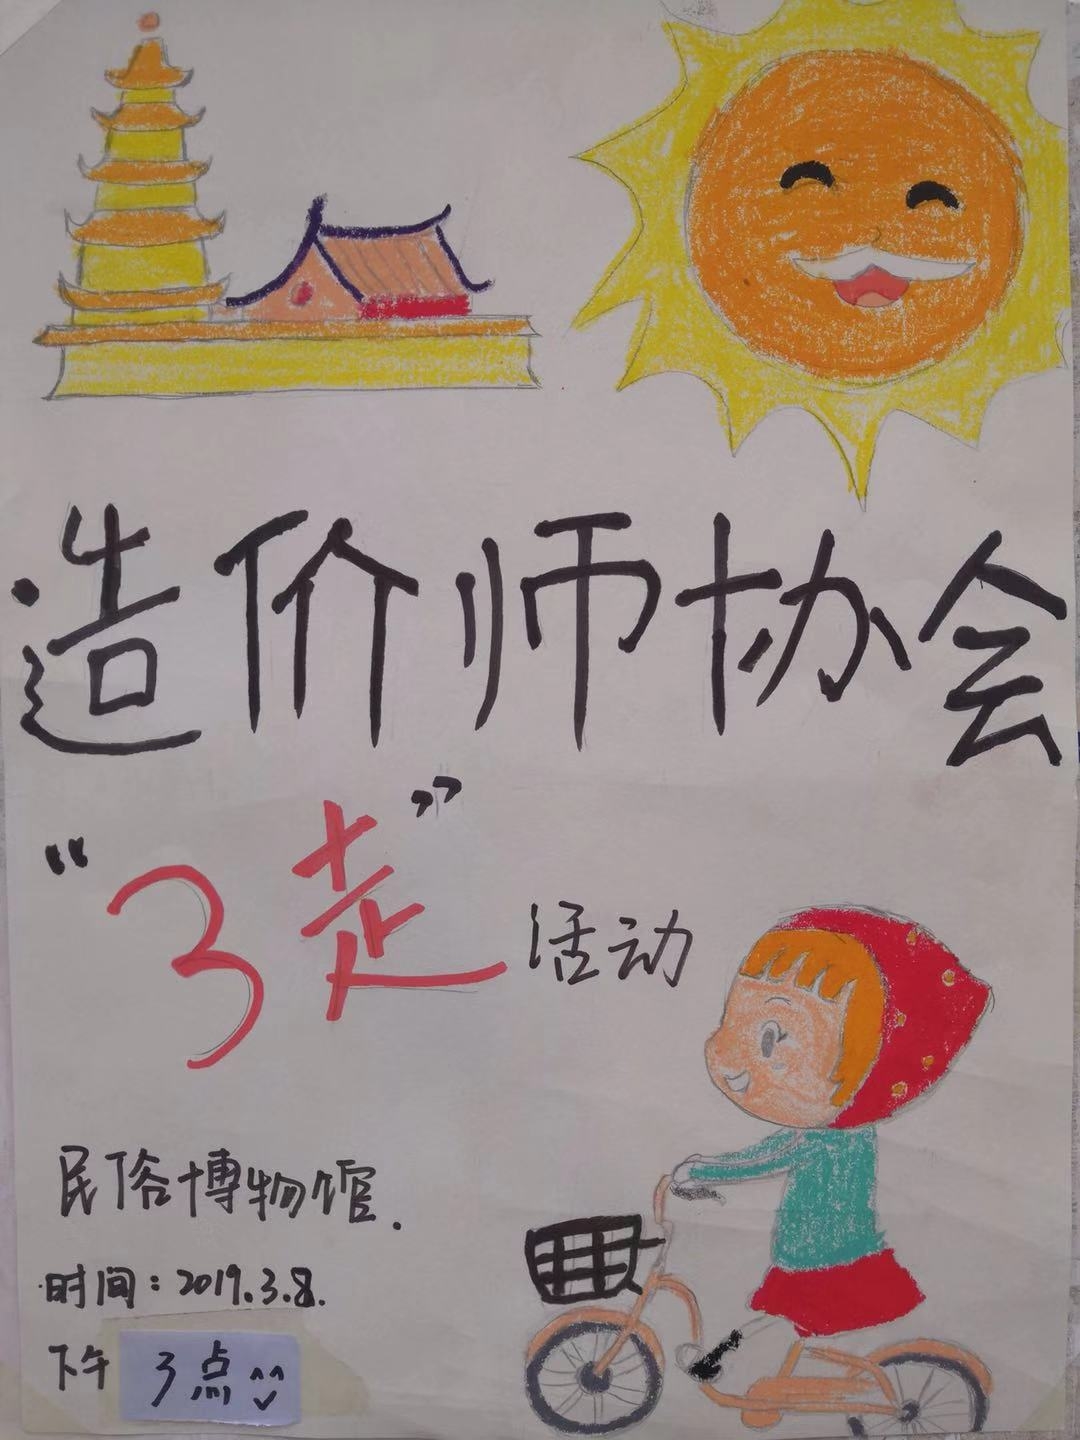 造价师协会
“3走”活动
民俗博物馆.
时间:2019.3.8.
下午 3点